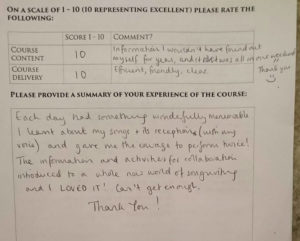 ON A SCALE OF 1 - 10 (10 REPRESENTING EXCELLENT) PLEASE RATE THE
FOLLOWING:
SCORE 1 - 10 COMMENT?
COURSE CONTENT 10 Information I wouldn't have found out
myself for years, and it was all in one weekend
COURSE DELIVERY 10 Efficient, friendly, clear. Thank you
PLEASE PROVIDE A SUMMARY OF YOUR EXPERIENCE OF THE COURSE:
Each day had something wonderfully memorable
I learnt about my songs + its receptione (with my
voice) and gave me the courage to perform twice!
The information and activities for collaboration
introduced to a whole new world of songwriting
and I LOVED IT! Can't get enough.
Thank You!